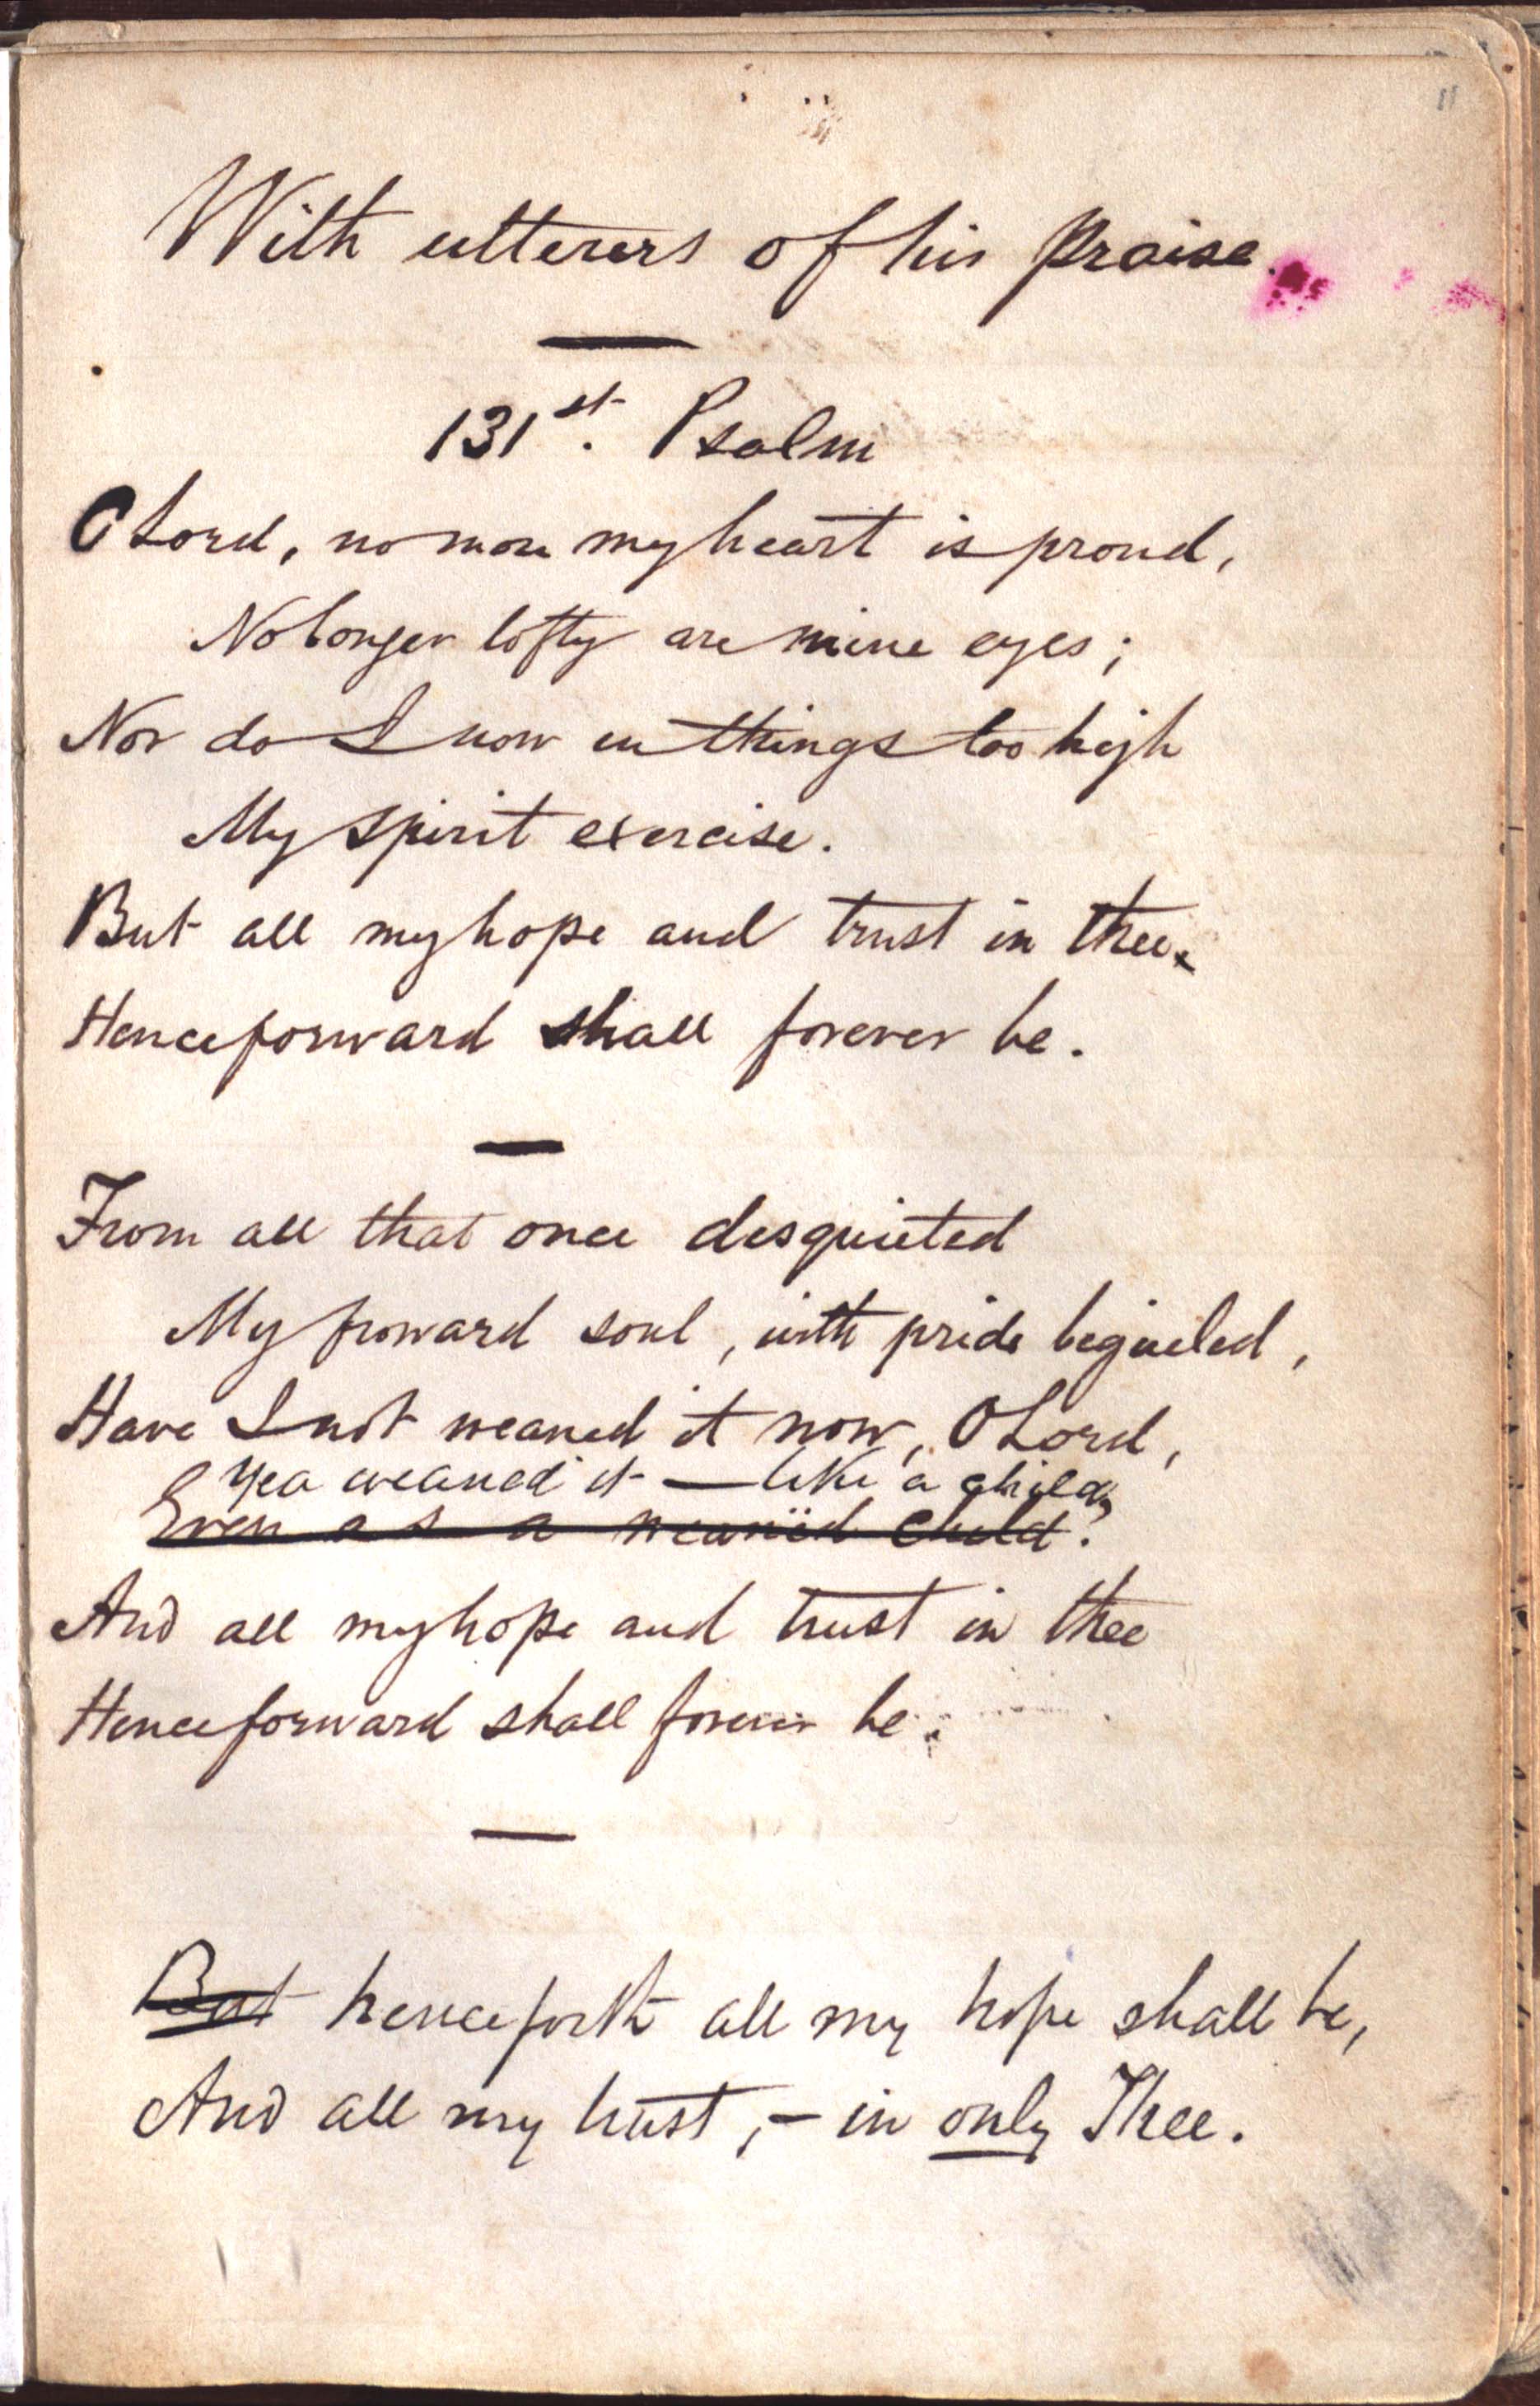 11
With utterers of his praise.
131st. Psalm
O Lord, no more my heart is proud,
No longer lofty are mine eyes;
Nor do I now in things too high
My spirit exercise.
But all my hope and trust in thee
Henceforward shall forever be.
From all that once disquieted
My froward soul, with pride begueled,
Have I not weaned it now, O Lord,
Yea weaned it — like a child?
Even as a weanëd child?
And all my hope and trust in thee
Henceforward shall forever be.
But henceforth all my hope shall be,
And all my trust, – in only Thee.